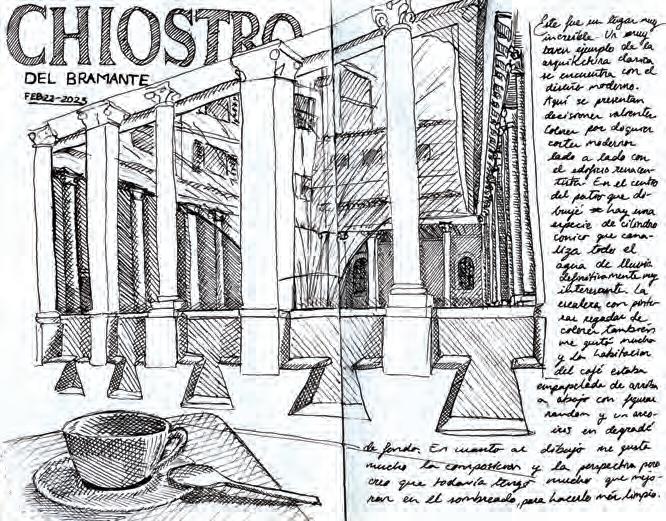 CHIOSTRO
DEL BRAMANTE
FEB 22-2023
Este fue un lugar muy
increíble. Un muy
buen ejemplo de la
arquitectura clásica
se encuentra con el
diseño moderno.
Aquí se presentan
decisiones valientes
colores por doquier
cortes modernos
lado a lado con
el edificio renacen-
tista. En el centro
del patio que di-
bujé hay una
especie de cilindro
cónico que cana-
liza todo el
agua de lluvia
definitivamente muy
interesante. La
escalera con pintu-
ras regadas de
colores también
me gustó mucho
y la habitación
del café estaba
empapelada de arriba
a abajo con figuras
random y un arco-
iris en degradé
de fondo. En cuanto al dibujo me gusta
mucho la composición y la perspectiva pero
creo que todavía tengo mucho que mejo-
rar en el sombreado, para hacerlo más limpio.